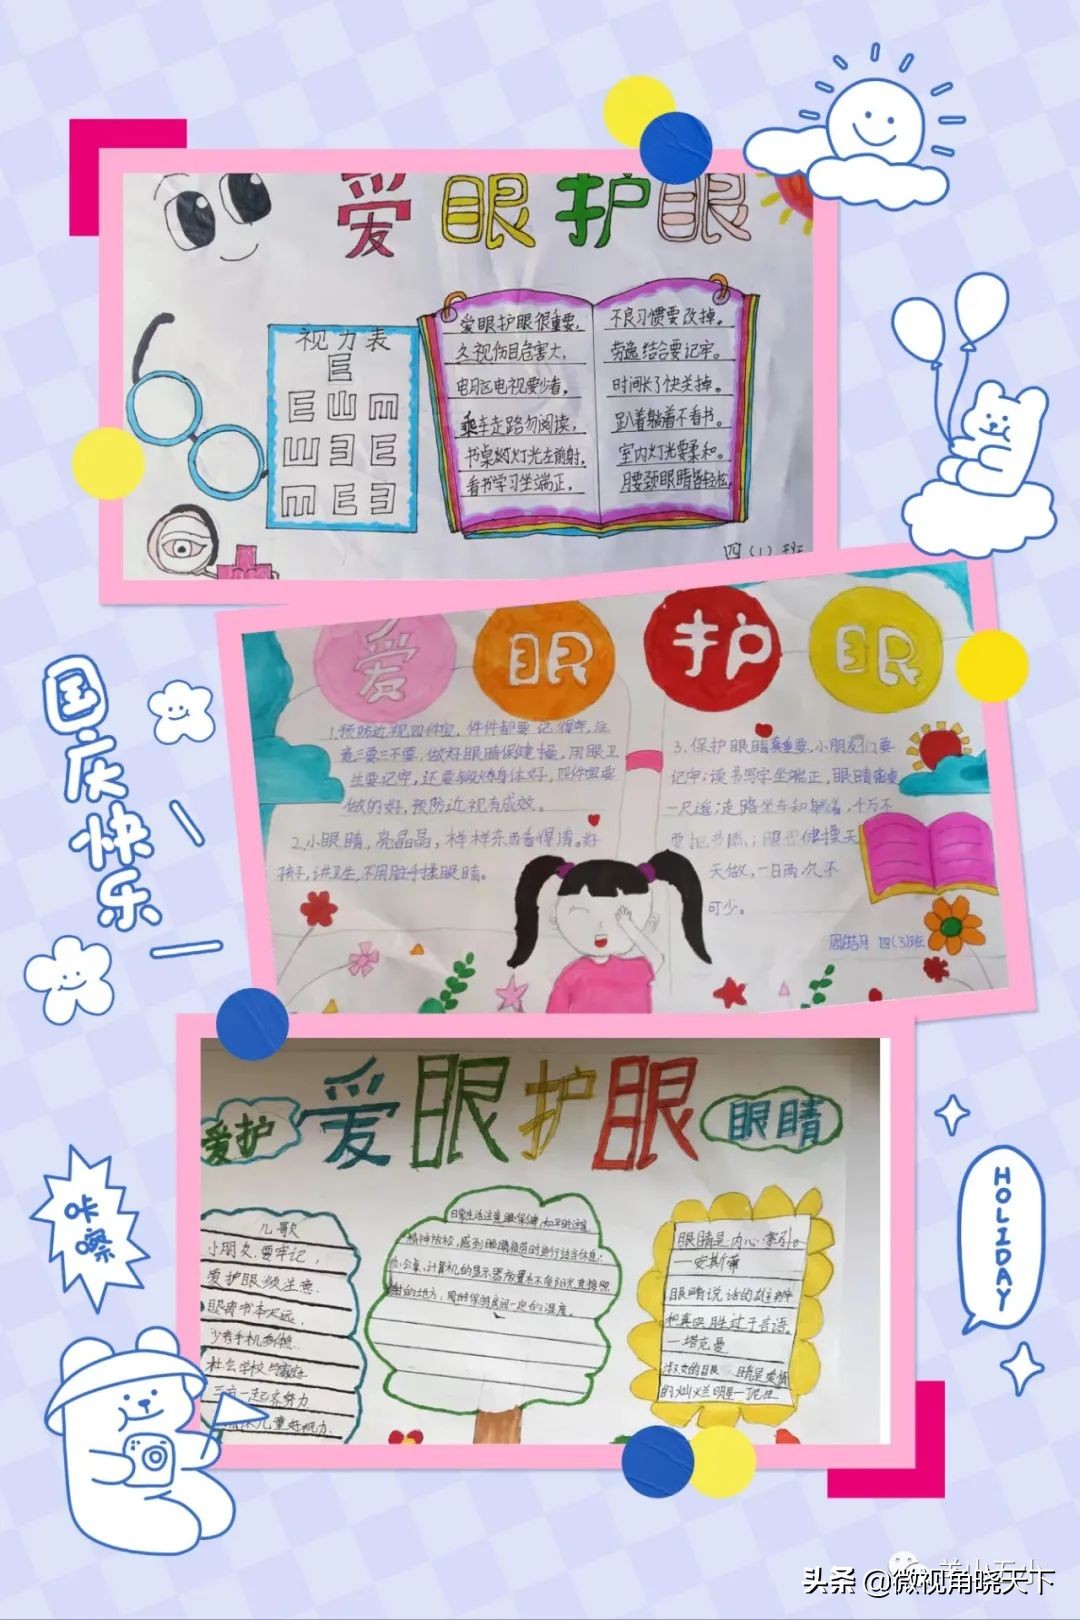 爱眼护眼
视力表
E
E Ш m
Ш ヨ E
m E ヨ
爱眼护眼很重要，
久视伤目危害大，
电脑电视要少看，
乘车走路勿阅读，
书桌灯光左前射，
看书学习坐端正，
不良习惯要改掉。
劳逸结合要记牢。
时间长了快关掉。
趴着躺着不看书。
室内灯光要柔和。
腰颈眼睛皆轻松。
四(1)班
爱眼护眼
1.预防近视四件宝，件件都要记得牢，注
意三要三不要，做好眼睛保健操，用眼卫
生要记牢，还要锻炼身体好，四件宝要
做的好，预防近视有成效。
2.小眼睛，亮晶晶，样样东西看得清。好
孩子，讲卫生，不用脏手揉眼睛。
3.保护眼睛真重要，小朋友们要
记牢；读书写字坐端正，眼睛离桌
一尺遥；走路坐车和躺着，千万不
要把书瞧；眼保健操天
天做，一日两次不
可少。
四(3)班
国庆快乐
爱护
爱眼护眼
眼睛
儿歌
小朋友，要牢记，
爱护眼须生意.
眼睛书本天远，
少看手机多休息.
社会学校与家庭
三方一起齐努力
儿童好视力.
日常生活注意眼保健，如平时注意
精神放松，感到眼睛疲劳时进行适当休息；
办公桌、计算机的显示器放置在不受阳光直接照
射的地方；同时保持房间一定的湿度。
眼睛是内心的索引。
—安斯蒂
眼睛说话的雄辩
和真实胜过于言语。
—塔克曼
淑女的眼睛是爱情
的灿烂明星—
咔嚓
HOLIDAY
羊山五小
头条 @微视角晓天下